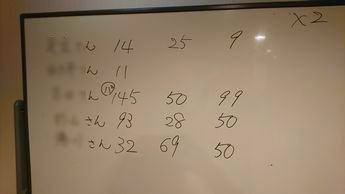 ×2
ん 14 25 9
ん 11
ん 145 50 99
さん 93 28 50
さん 32 69 50